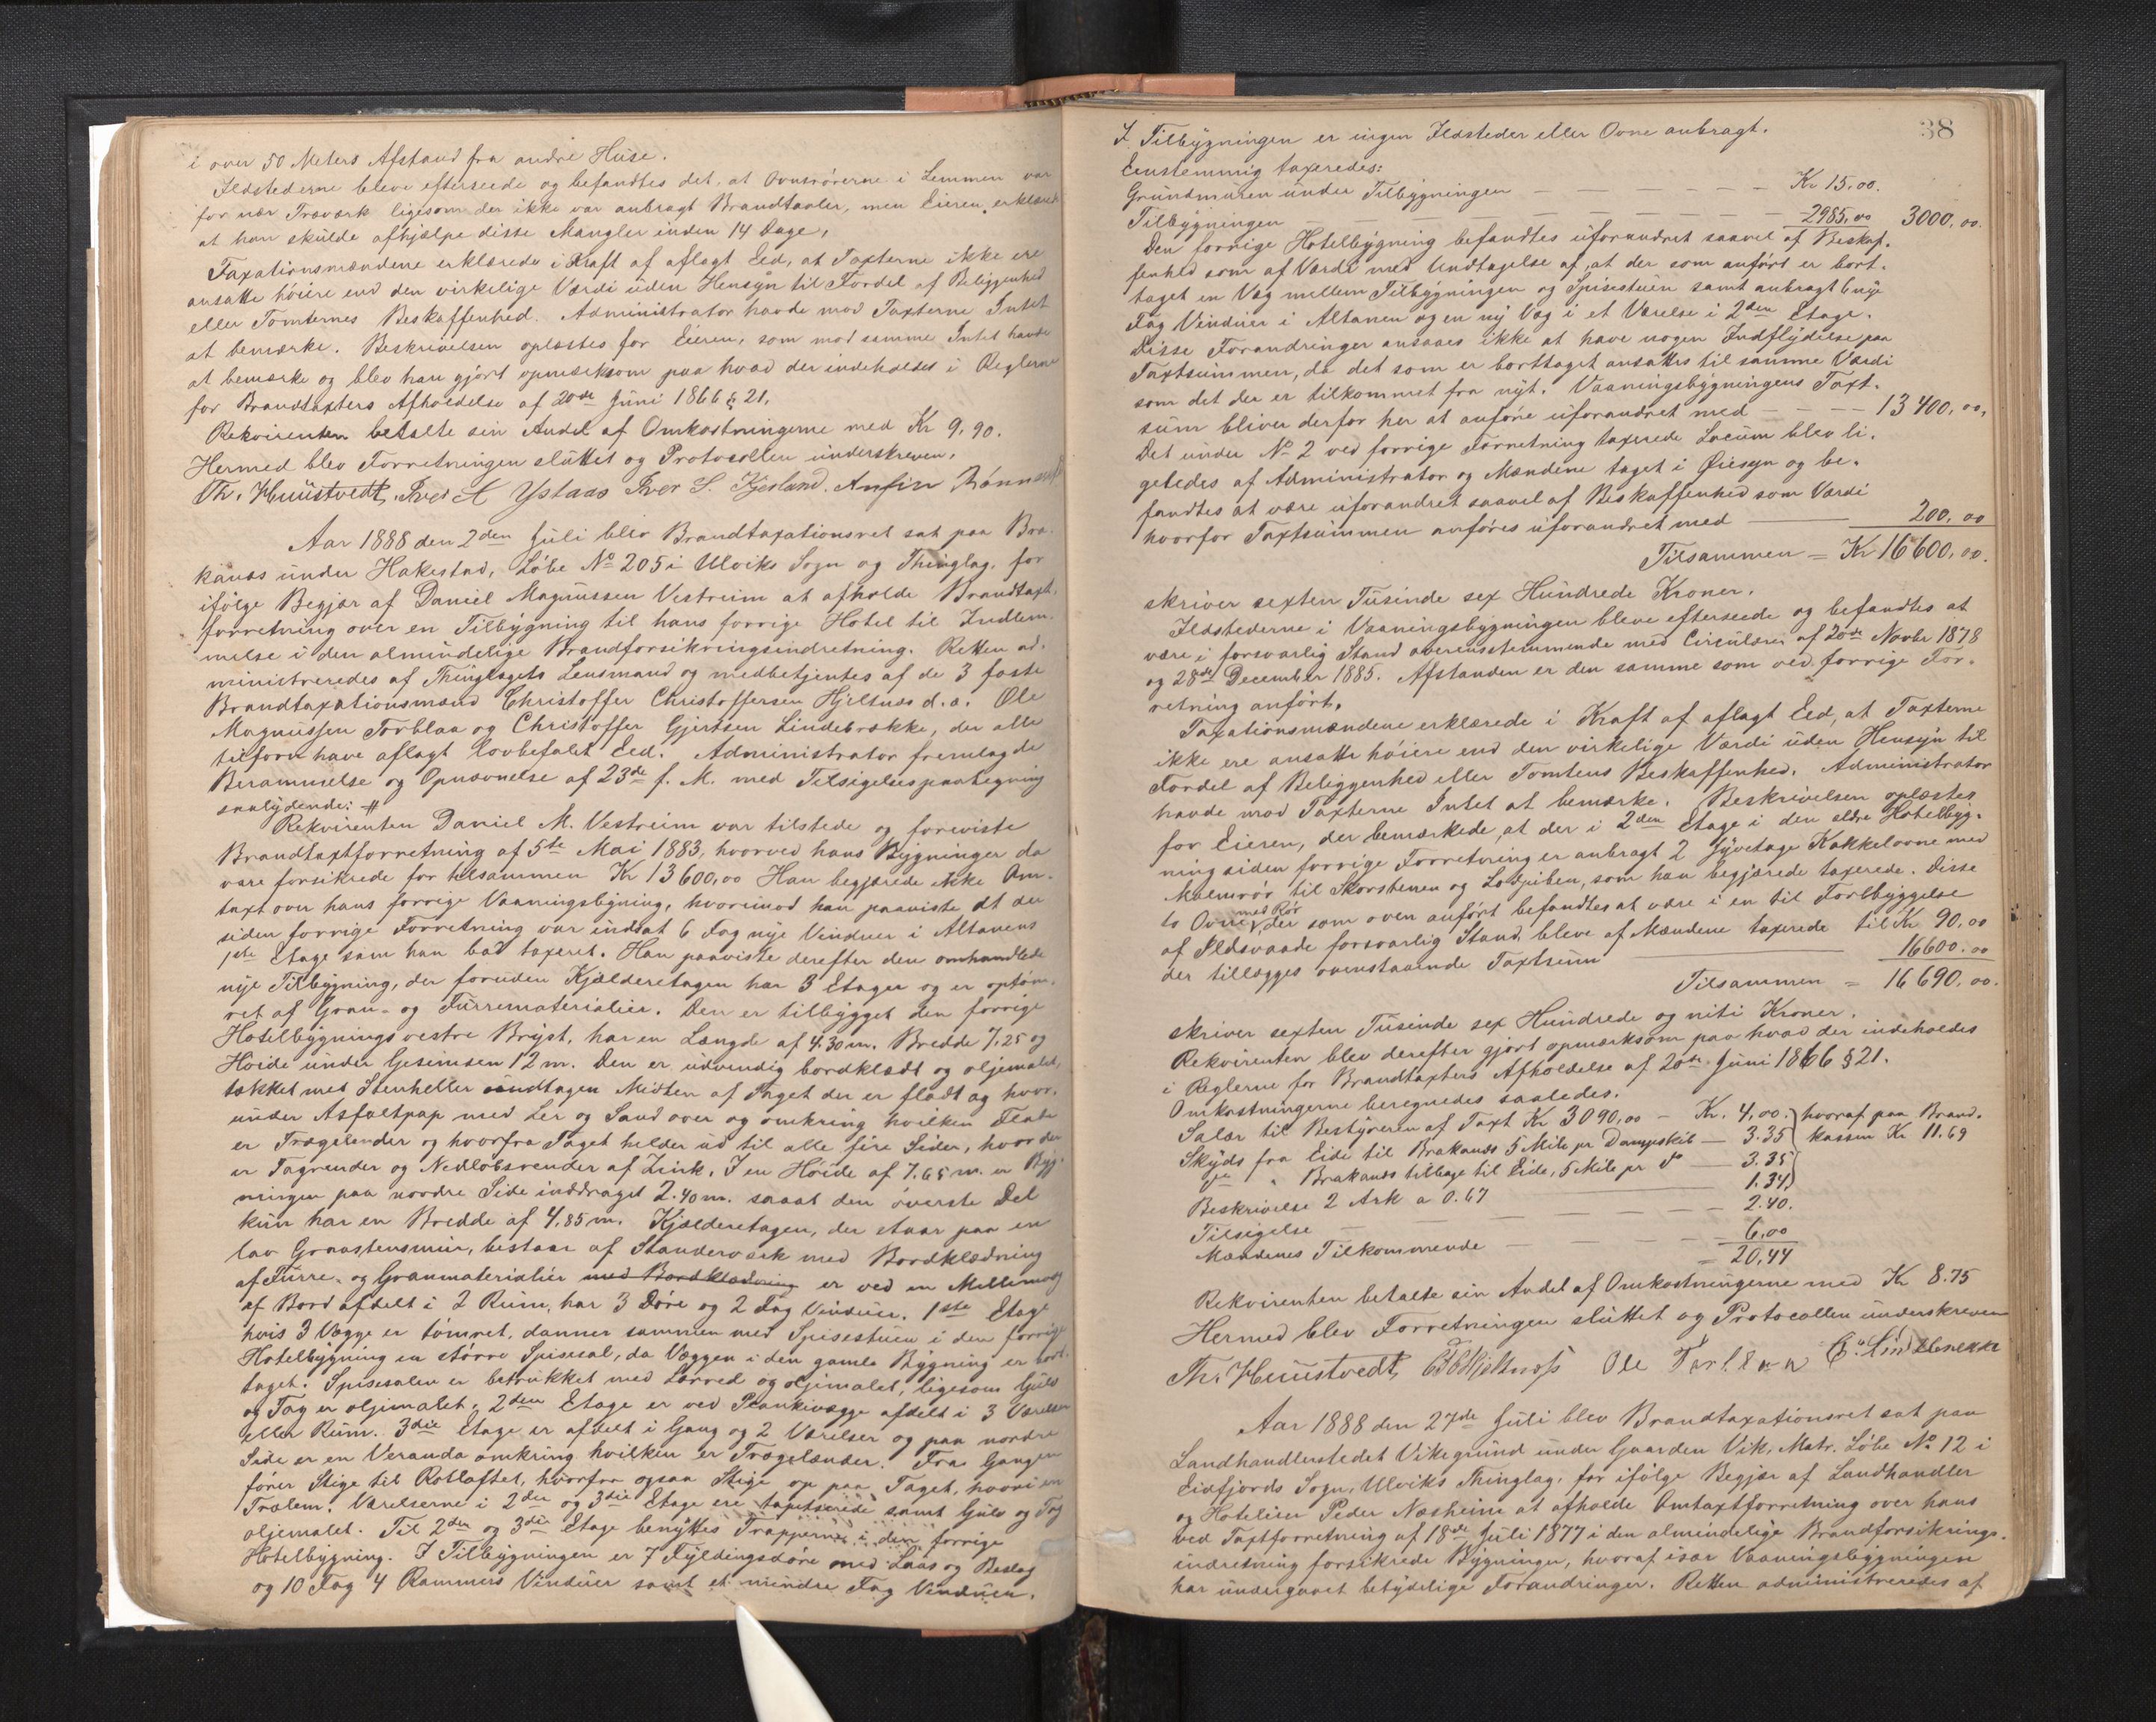 i over 50 Meters Afstand fra andre Huse.
Ildstederne bleve efterseede og befandtes det, at Ovnsrørerne i Lemmen var
for nær Træværk ligesom der ikke var anbragt Brandtavler, men Eieren erklærede
at han skulde afhjælpe disse Mangler inden 14 Dage.
Taxationsmændene erklærede i Kraft af aflagt Eed, at Taxterne ikke ere
ansatte höiere end den virkelige Værdi uden Hensyn til Fordel af Beliggenhed
eller Tomternes Beskaffenhed. Administrator havde mod Taxterne Intet
at bemærke. Beskrivelsen oplæstes for Eieren, som mod samme Intet havde
at bemærke og blev han gjort opmærksom paa hvad der indeholdes i Reglerne
for Brandtaxters Afholdelse af 20de Juni 1866 § 21.
Rekvirenten betalte sin Andel af Omkostningerne med Kr 9,90.
Hermed blev Forretningen sluttet og Protocollen underskreven.
Th. Huustvedt, Iver A Ystaas Iver S. Kjerland. Anfin
Aar 1888 den 2den Juli blev Brandtaxationsret sat paa Bra-
kanæs under Hakestad, Löbe No 205 i Ulviks Sogn og Thinglag, for
ifölge Begjær af Daniel Magnussen Vestreim at afholde Brandtaxt-
forretning over en Tilbygning til hans forrige Hotel til Indlem-
melse i den almindelige Brandforsikringsindretning. Retten ad-
ministreredes af Thinglagets Lensmand og medbetjentes af de 3 faste
Brandtaxationsmænd Christoffer Christoffersen Hjeltnæs d.æ. Ole
Magnussen Torblaa og Christoffer Gjertsen Lindebrække, der alle
tilforn have aflagt lovbefalet Eed. Administrator fremlagde
Berammelse og Opnævnelse af 23de f. M. med Tilsigelsespaategning
saalydende: #
Rekvirenten Daniel M. Vestreim var tilstede og foreviste
Brandtaxtforretning af 5te Mai 1883, hvorved hans Bygninger da
vare forsikrede for tilsammen Kr 13600,00 Han begjærede ikke Om-
taxt over hans forrige Vaaningsbygning, hvorimod han paaviste at der
siden forrige Forretning var indsat 6 Fag nye Vinduer i Altanens
1ste Etage som han bad taxeret. Han paaviste derefter den omhandlede
nye Tilbygning, der foruden Kjælderetagen har 3 Etager og er optöm-
ret af Gran- og Furrematerialier. Den er tilbygget den forrige
Hotelbygnings vestre Bryst, har en Længde af 4.30 m. Bredde 7,25 og
Höide under Gesimsen 12 m. Den er udvendig bordklædt og oljemalet,
tækket med Stenheller undtagen Midten af Taget der er fladt og hvor-
under Asfaltpap med Ler og Sand over og omkring hvilken Flade
er Trægelender og hvorfra Taget helder ud til alle fire Sider, hvor der
er Tagrender og Nedlöbsrender af Zink. I en Höide af 7.65 m. er Byg-
ningen paa nordre Side inddraget 2.40 m. saaat den överste Del
kun har en Bredde af 4,85 m. Kjælderetagen, der staar paa en
lav Graastensmur, bestaar af Standerværk med Bordklædning
af Furre- og Granmaterialier med Bordklædning er ved en Mellemvæg
af Bord afdelt i 2 Rum, har 3 Döre og 2 Fag Vinduer. 1ste Etage
hvis 3 Vægge er tömret, danner sammen med Spisestuen i den forrige
Hotelbygning en större Spisesal, da Væggen i den gamle Bygning er bort-
taget. Spisesalen er betrukket med Lærred og oljemalet, ligesom Gulv
og Tag er oljemalet. 2den Etage er ved Plankevægge afdelt i 3 Værelser
eller Rum. 3die Etage er afdelt i Gang og 2 Værelser og paa nordre
Side er en Veranda omkring hvilken er Trægelænder. Fra Gangen
förer Stige til Rotloftet, hvorfra ogsaa Stige op paa Taget, hvori en
Trælem. Værelserne i 2den og 3die Etage ere tapetserede samt Gulv og Tag
oljemalet. Til 2den og 3die Etage benyttes Trapperne i den forrige
Hotelbygning. I Tilbygningen er 7 Fyldingsdöre med Laas og Beslag
og 10 Fag 4 Rammers Vinduer samt et mindre Fag Vinduer.
38
I Tilbygningen er ingen Ildsteder eller Ovne anbragt.
Eenstemmig taxeredes:
Grundmuren under Tilbygningen — Kr 15,00.
Tilbygningen — 2985,00 3000,00.
Den forrige Hotelbygning befandtes uforandret saavel af Beskaf-
fenhed som af Værdi med Undtagelse af, at der som anfört er bort-
taget en Væg mellem Tilbygningen og Spisestuen samt anbragt 6 nye
Fag Vinduer i Altanen og en ny Væg i et Værelse i 2den Etage.
Disse Forandringer ansaaes ikke at have nogen Indflydelse paa
Taxtsummen, da det som er borttaget ansattes til samme Værdi
som det der er tilkommet fra nyt. Vaaningsbygningens Taxt-
sum bliver derfor her at anföre uforandret med — 13400,00.
Det under No 2 ved forrige Forretning taxerede Locum blev li-
geledes af Administrator og Mændene taget i Öiesyn og be-
fandtes at være uforandret saavel af Beskaffenhed som Værdi
hvorfor Taxtsummen anföres uforandret med — 200,00
Tilsammen = Kr 16600,00.
skriver sexten Tusinde sex Hundrede Kroner.
Ildstederne i Vaaningsbygningen bleve efterseede og befandtes at
være i forsvarlig Stand overensstemmende med Circulærer af 20de Novbr 1878
og 28de December 1885. Afstanden er den samme som ved forrige For-
retning anfört.
Taxationsmændene erklærede i Kraft af aflagt Eed, at Taxterne
ikke ere ansatte höiere end den virkelige Værdi uden Hensyn til
Fordel af Beliggenhed eller Tomtens Beskaffenhed. Administrator
havde mod Taxterne Intet at bemærke. Beskrivelsen oplæstes
for Eieren, der bemærkede, at der i 2den Etage i den ældre Hotelbyg-
ning siden forrige Forretning er anbragt 2 Kakkelovne med
Malmrör til Skorstenen og Lodpiben, som han begjærede taxerede. Disse
to Ovne med Rör der som oven anfört befandtes at være i en til Forebyggelse
af Ildsvaade forsvarlig Stand bleve af Mændene taxerede til Kr 90,00
der tillægges ovenstaaende Taxtsum — 16600.00
Tilsammen = 16690,00.
skriver sexten Tusinde sex Hundrede og niti Kroner.
Rekvirenten blev derefter gjort opmærksom paa hvad der indeholdes
i Reglerne for Brandtaxters Afholdelse af 20de Juni 1866 § 21.
Omkostningerne beregnedes saaledes:
Salær til Bestyreren af Taxt Kr 3090,00 — Kr. 4,00. hvoraf paa Brand-
Skyds fra Eide til Brakanæs 5 Mile pr Dampskib — 3.35 kassen Kr 11.69
do " Brakanæs tilbage til Eide, 5 Mile pr do — 3.35
Beskrivelse 2 Ark a 0.67 — 1.34
Tilsigelse — 2.40.
Mændenes Tilkommende — 6,00
= 20,44
Rekvirenten betalte sin Andel af Omkostningerne med Kr 8.75
Hermed blev Forretningen sluttet og Protocollen underskreven
Th. Huustvedt, Hjeltnæs Ole Torblaa Lindebrække
Aar 1888 den 27de Juli blev Brandtaxationsret sat paa
Landhandlerstedet Vikegrund under Gaarden Vik, Matr. Löbe No 12 i
Eidfjords Sogn, Ulviks Thinglag, for ifölge Begjær af Landhandler
og Hoteleier Peder Næsheim at afholde Omtaxtforretning over hans
ved Taxtforretning af 18de Juli 1877 i den almindelige Brandforsikrings-
indretning forsikrede Bygninger, hvoraf især Vaaningsbygningen
har undergaaet betydelige Forandringer. Retten administreredes af